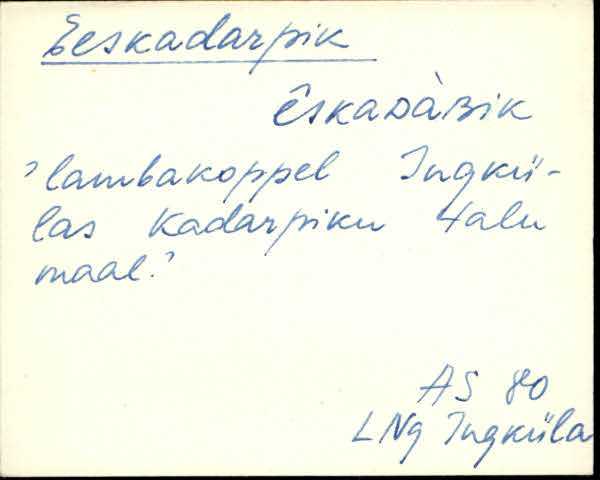 Eeskadarpik
êskaᴅàʙik
'lambakoppel Ingkü-
las Kadarpiku talu
maal.'
AS 80
LNg Ingküla